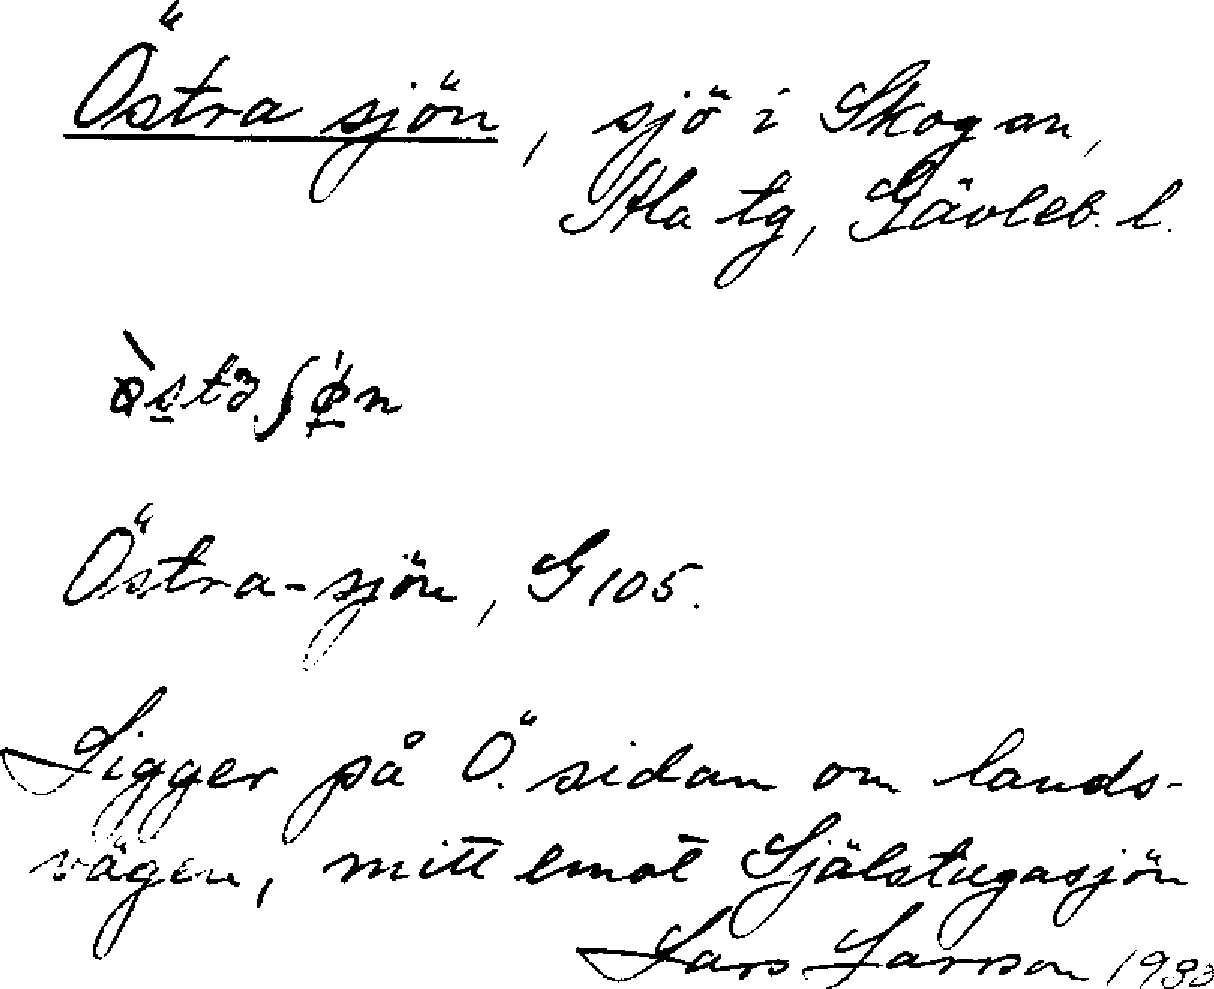 Östra sjön, sjö i Skogan,
Ala tg, Gävleb. l.
Östra-sjön, G 105.
Ligger på Ö. sidan om lands-
vägen, mitt emot Själstugasjön
Lars Larsson